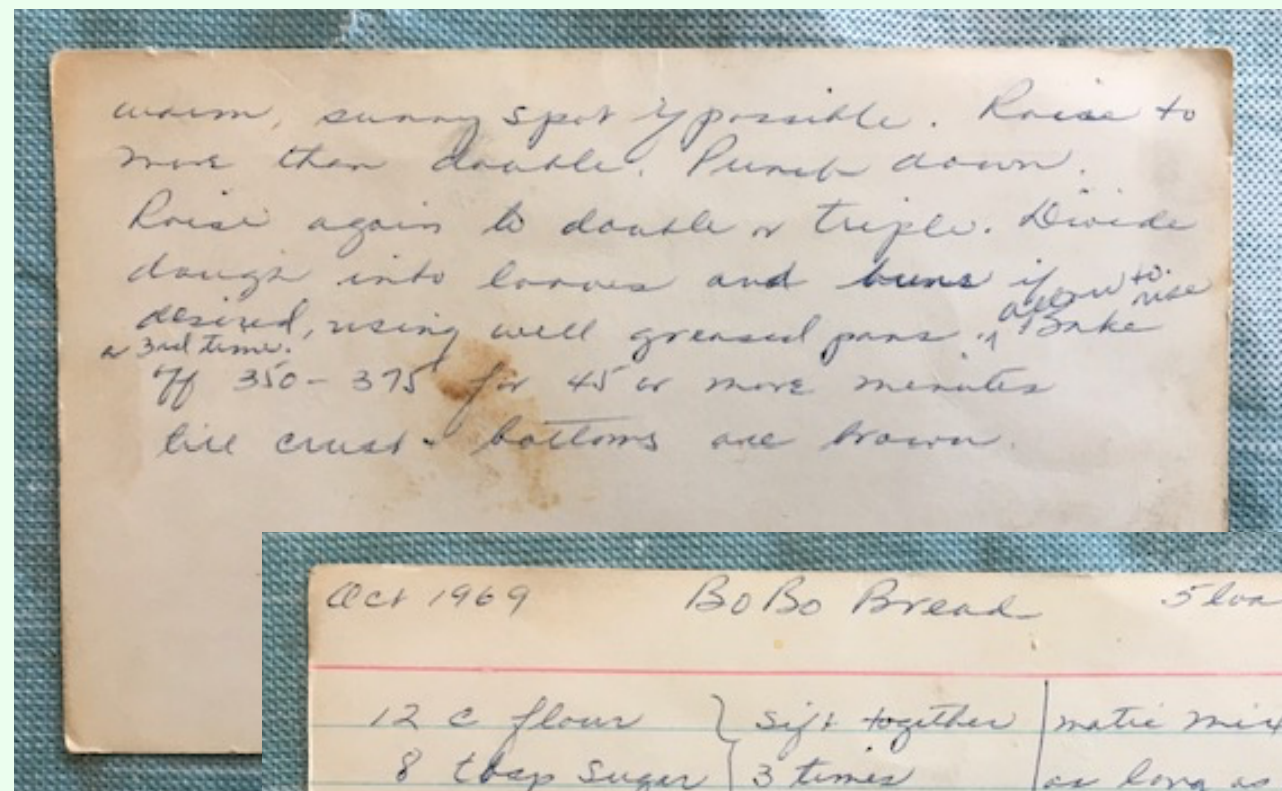 warm, sunny spot if possible. Raise to
more than double. Punch down.
Raise again to double or triple. Divide
dough into loaves and buns if
desired, using well greased pans. allow to rise
a 3rd time. Bake
350-375 for 45 or more minutes
till crust + bottoms are brown.
Oct 1969 BoBo Bread 5 loa
12 c flour } Sift together matic mix
8 tbsp Sugar 3 times as long as